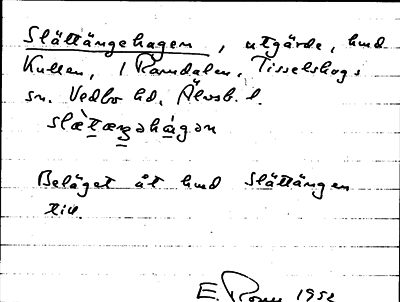 Slättängehagen, utgärde, hmd
Kullen, 1 Ramdalen, Tisselskogs
sn. Vedbo hd, Älvsb. l.
slæ̀tæŋəhágən
Beläget åt hmd Slättängen
till.
E. 1952